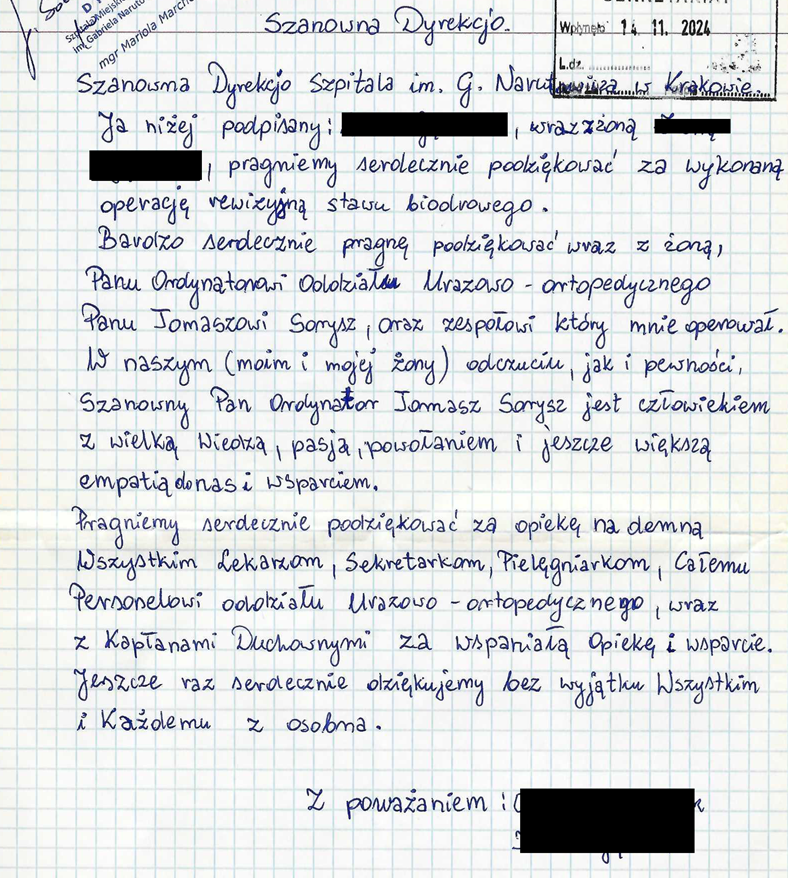 Szanowna Dyrekcjo.
Wpłynęło 14. 11. 2024
L.dz.
Szpitala Miejski
im. Gabriela Naruto
mgr Mariola March
Szanowna Dyrekcjo Szpitala im. G. Narutowicza w Krakowie.
Ja niżej podpisany: , wraz z żoną
, pragniemy serdecznie podziękować za wykonaną
operację rewizyjną stawu biodrowego.
Bardzo serdecznie pragnę podziękować wraz z żoną,
Panu Ordynatorowi Oddziału Urazowo - ortopedycznego
Panu Tomaszowi Sorysz, oraz zespołowi który mnie operował.
W naszym (moim i mojej żony) odczuciu, jak i pewności,
Szanowny Pan Ordynator Tomasz Sorysz jest człowiekiem
z wielką Wiedzą, pasją, powołaniem i jeszcze większą
empatią do nas i wsparciem.
Pragniemy serdecznie podziękować za opiekę na demną
Wszystkim Lekarzom, Sekretarkom, Pielęgniarkom, Całemu
Personelowi oddziału Urazowo - ortopedycznego, wraz
z Kapłanami Duchownymi za wspaniałą Opiekę i wsparcie.
Jeszcze raz serdecznie dziękujemy bez wyjątku Wszystkim
i Każdemu z osobna.
Z poważaniem :